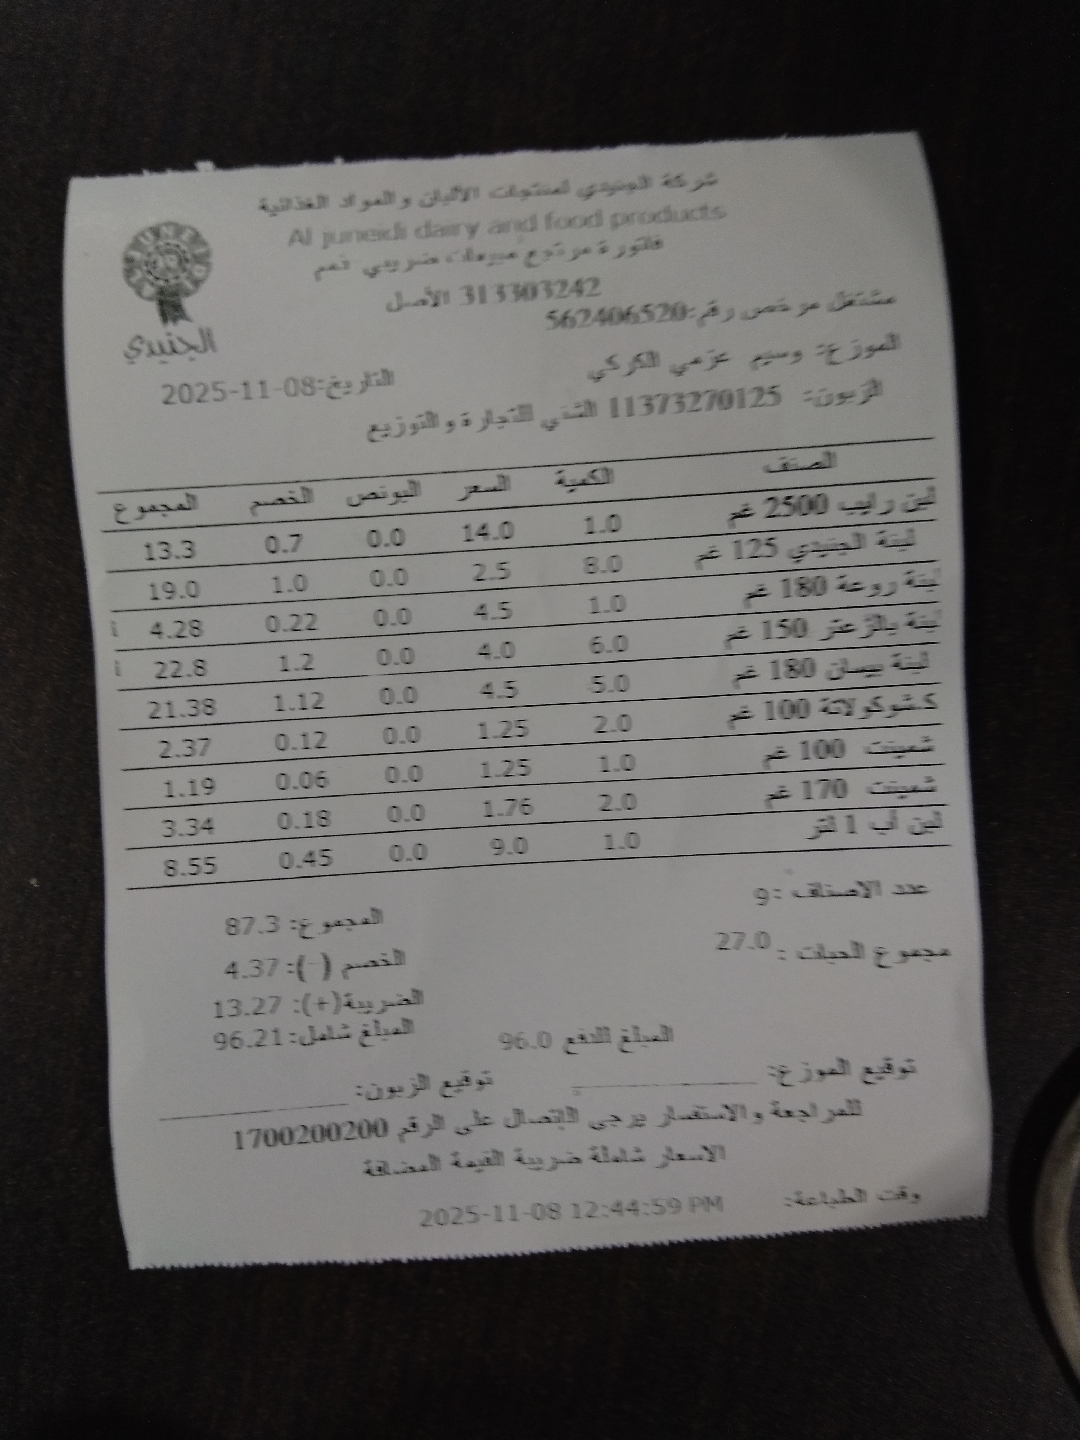 شركة الجنيدي لمنتجات الألبان و المواد الغذائية
Al juneidi dairy and food products
فاتورة مرتجع مبيعات ضريبي ذمم
313303242 الأصل
مشتغل مرخص رقم:562406520
الجنيدي
الموزع: وسيم عزمي الكركي
التاريخ:2025-11-08
الزبون: 11373270125 التجارة والتوزيع
الصنف الكمية السعر البونص الخصم المجموع
لبن رايب 2500 غم 1.0 14.0 0.0 0.7 13.3
لبنة الجنيدي 125 غم 8.0 2.5 0.0 1.0 19.0
لبنة روعة 180 غم 1.0 4.5 0.0 0.22 4.28 أ
لبنة بالزعتر 150 غم 6.0 4.0 0.0 1.2 22.8 أ
لبنة بيسان 180 غم 5.0 4.5 0.0 1.12 21.38
كشوكولاتة 100 غم 2.0 1.25 0.0 0.12 2.37
شمينت 100 غم 1.0 1.25 0.0 0.06 1.19
شمينت 170 غم 2.0 1.76 0.0 0.18 3.34
لبن أب 1 لتر 1.0 9.0 0.0 0.45 8.55
عدد الاصناف :9
المجموع: 87.3
مجموع الحبات : 27.0
الخصم (-): 4.37
الضريبة(+): 13.27
المبلغ شامل: 96.21
المبلغ للدفع 96.0
توقيع الموزع: ____________
توقيع الزبون: ____________
للمراجعة والاستفسار يرجى الإتصال على الرقم 1700200200
الاسعار شاملة ضريبة القيمة المضافة
وقت الطباعة: 2025-11-08 12:44:59 PM